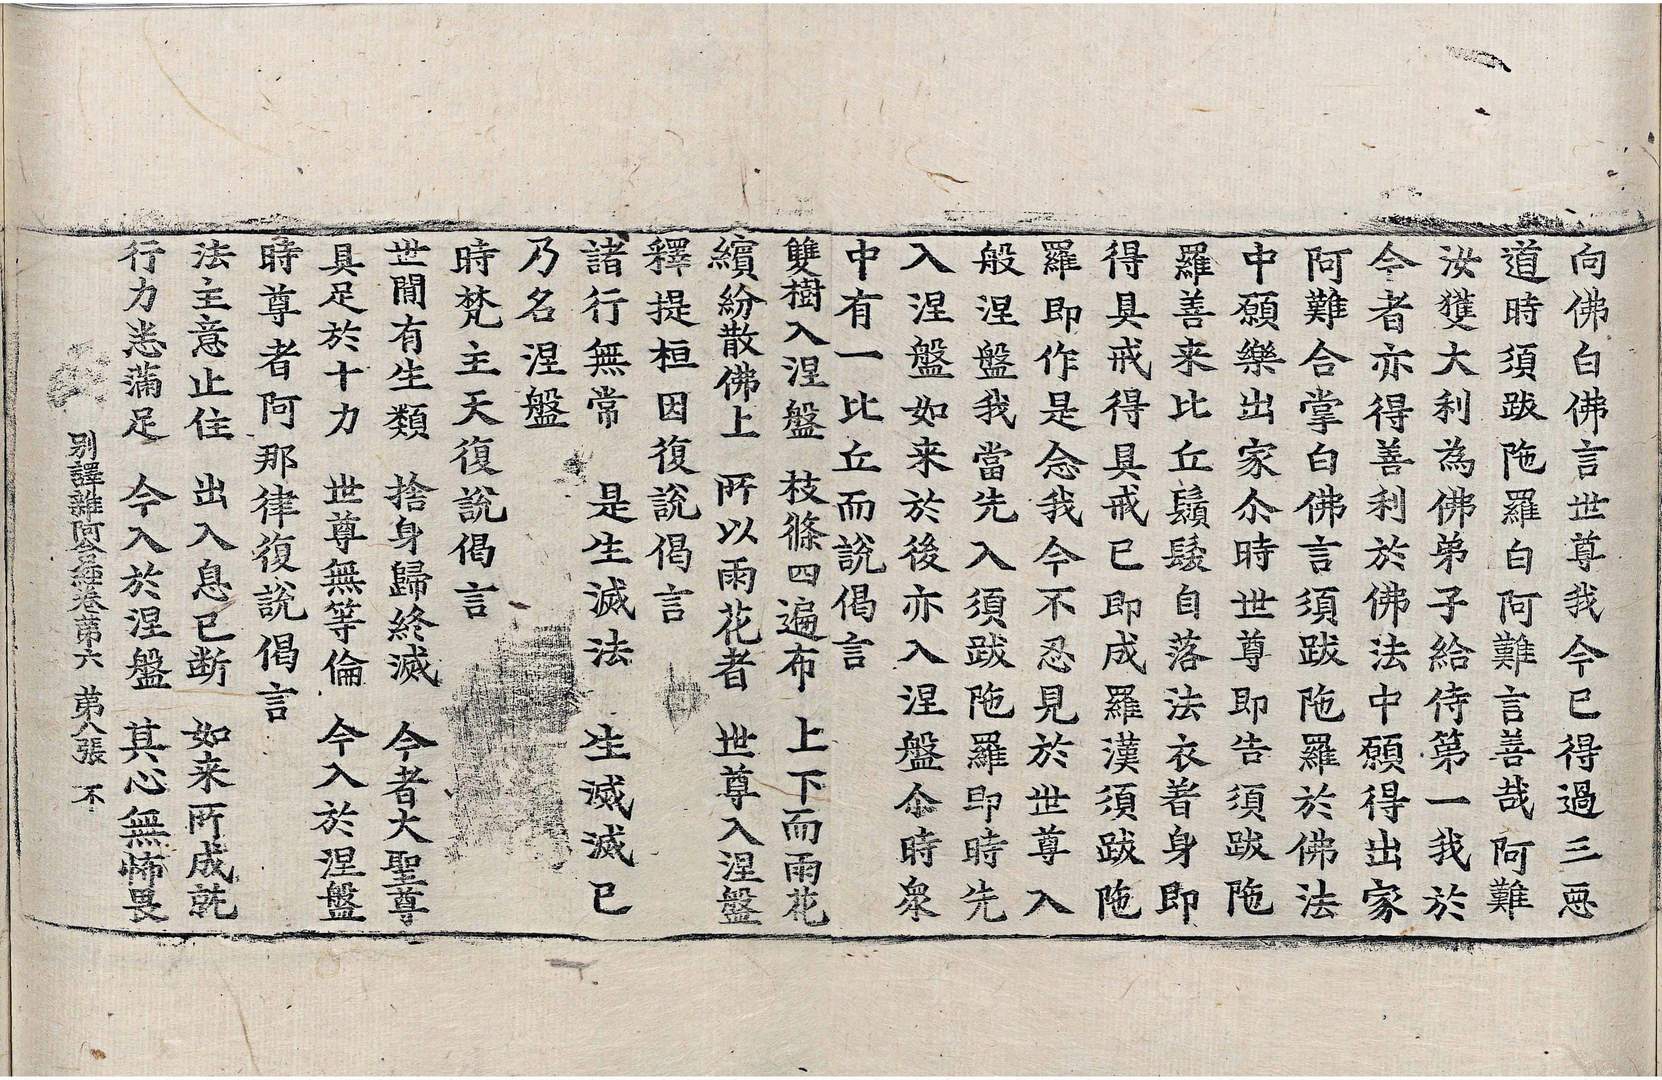 向佛白佛言世尊我今已得過三惡
道時須跋陁羅白阿難言善哉阿難
汝獲大利為佛弟子給侍第一我於
今者亦得善利於佛法中願得出家
阿難合掌白佛言須跋陁羅於佛法
中願樂出家尒時世尊即告須跋陁
羅善来比丘鬚髮自落法衣著身即
得具戒得具戒已即成羅漢須跋陁
羅即作是念我今不忍見於世尊入
般涅盤我當先入須跋陁羅即時先
入涅盤如来於後亦入涅盤尒時衆
中有一比丘而說偈言
雙樹入涅盤　枝條四遍布　上下而雨花
繽紛散佛上　所以雨花者　世尊入涅盤
釋提桓因復說偈言
諸行無常　是生滅法　生滅滅已
乃名涅盤
時梵主天復說偈言
世間有生類　捨身歸終滅　今者大聖尊
具足於十力　世尊無等倫　今入於涅盤
時尊者阿那律復說偈言
法主意止住　出入息已断　如来所成就
行力悉滿足　今入於涅盤　其心無怖畏
别譯雜阿含經卷苐六　苐八張　不